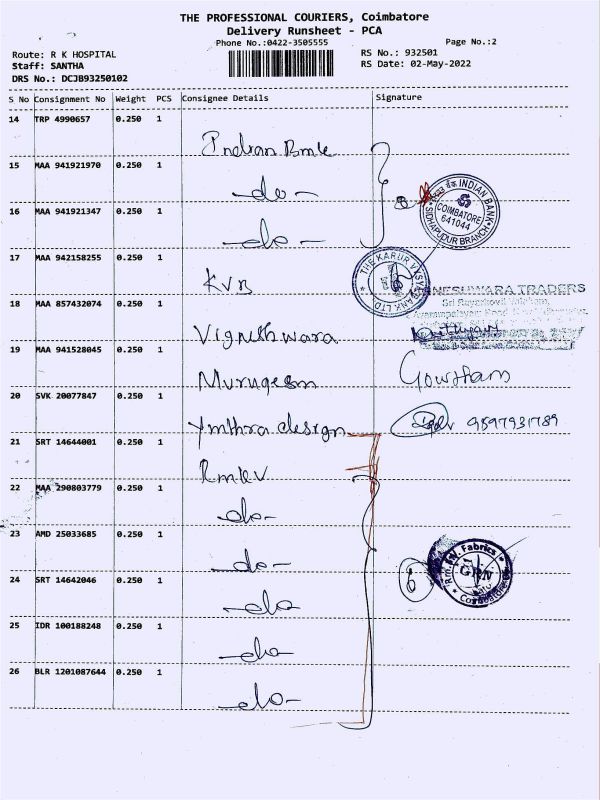 THE PROFESSIONAL COURIERS, Coimbatore
Delivery Runsheet - PCA
Phone No.:0422-3505555
Page No.:2
Route: R K HOSPITAL
RS No.: 932501
Staff: SANTHA
RS Date: 02-May-2022
DRS No.: DCJB93250102
S No Consignment No Weight PCS Consignee Details Signature
14 TRP 4990657 0.250 1
Indian Bank
15 MAA 941921970 0.250 1
-do-
INDIAN BANK
COIMBATORE
641044
SIDHAPUDUR BRANCH
16 MAA 941921347 0.250 1
-do-
17 MAA 942158255 0.250 1
KVB
THE KARUR VYSYA BANK LTD.
NESHWARA TRADERS
18 MAA 857432074 0.250 1
Vigneshwara
19 MAA 941528045 0.250 1
Murugesan Gowtham
20 SVK 20077847 0.250 1
design 9597931789
21 SRT 14644001 0.250 1
Rmkv
22 MAA 290803779 0.250 1
-do-
23 AMD 25033685 0.250 1
-do-
24 SRT 14642046 0.250 1
-do
6
Fabrics
GRN
Coimbatore
25 IDR 100188248 0.250 1
-do
26 BLR 1201087644 0.250 1
-do-